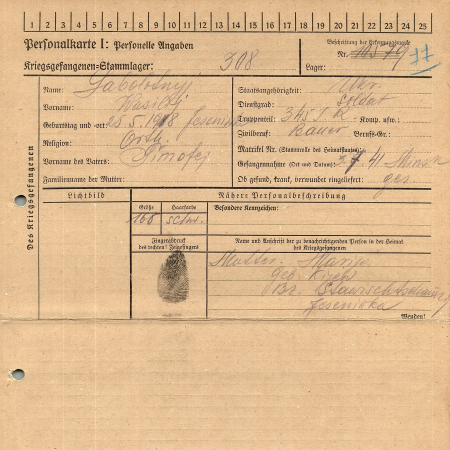 1 2 3 4 5 6 7 8 9 10 11 12 13 14 15 16 17 18 19 20 21 22 23 24 25
Personalkarte I: Personelle Angaben
Kriegsgefangenen-Stammlager: 308
Beschriftung der Erkennungsmarke
Nr. 10579 77
Lager:
Des Kriegsgefangenen
Name: Sabolotnyj
Vorname: Wasilij
Geburtstag und -ort: 15.5.1918
Religion: Orth.
Vorname des Vaters: Timofej
Familienname der Mutter:
Staatsangehörigkeit: Ukr.
Dienstgrad: Soldat
Truppenteil: 345 Komp. usw.:
Zivilberuf: Bauer Berufs-Gr.:
Matrikel Nr. (Stammrolle des Heimatstaates):
Gefangennahme (Ort und Datum): 7. 41 Minsk
Ob gesund, krank, verwundet eingeliefert: ges.
Lichtbild
Nähere Personalbeschreibung
Größe Haarfarbe Besondere Kennzeichen:
168 schw.
Fingerabdruck
des rechten! Zeigefingers
Name und Anschrift der zu benachrichtigenden Person in der Heimat
des Kriegsgefangenen
Mutter: Marija
geb.
Wenden!